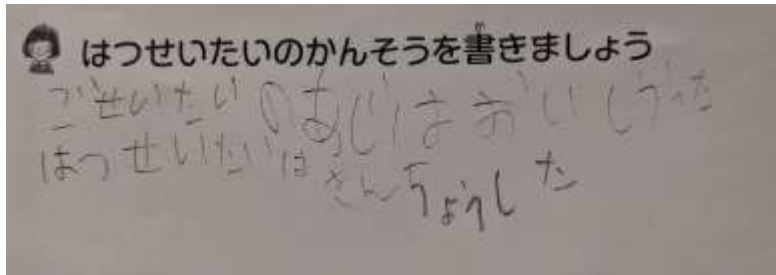 はつせいたいのかんそうを書きましょう
ごせいたいのあじはおいしかった
はつせいたいはきんちょうした